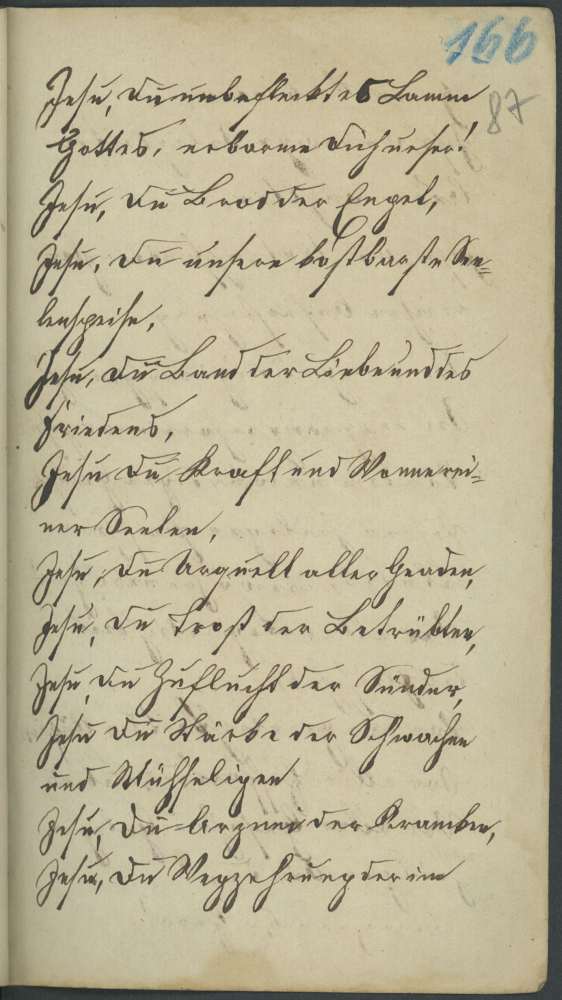 166
87
Jesu, du unbeflecktes Lamm
Gottes, erbarme dich unser!
Jesu, du Brod der Engel,
Jesu, du unsere kostbarste See-
lenspeise,
Jesu, du Band der Liebe und des
Friedens,
Jesu du Kraft und Wonne rei-
ner Seelen,
Jesu, du Urquell aller Gnaden,
Jesu, du Trost der Betrübten,
Jesu, du Zuflucht der Sünder,
Jesu du Stärke der Schwachen
und Mühseligen
Jesu, du Arznei der Kranken,
Jesu, du Wegzehrung der im